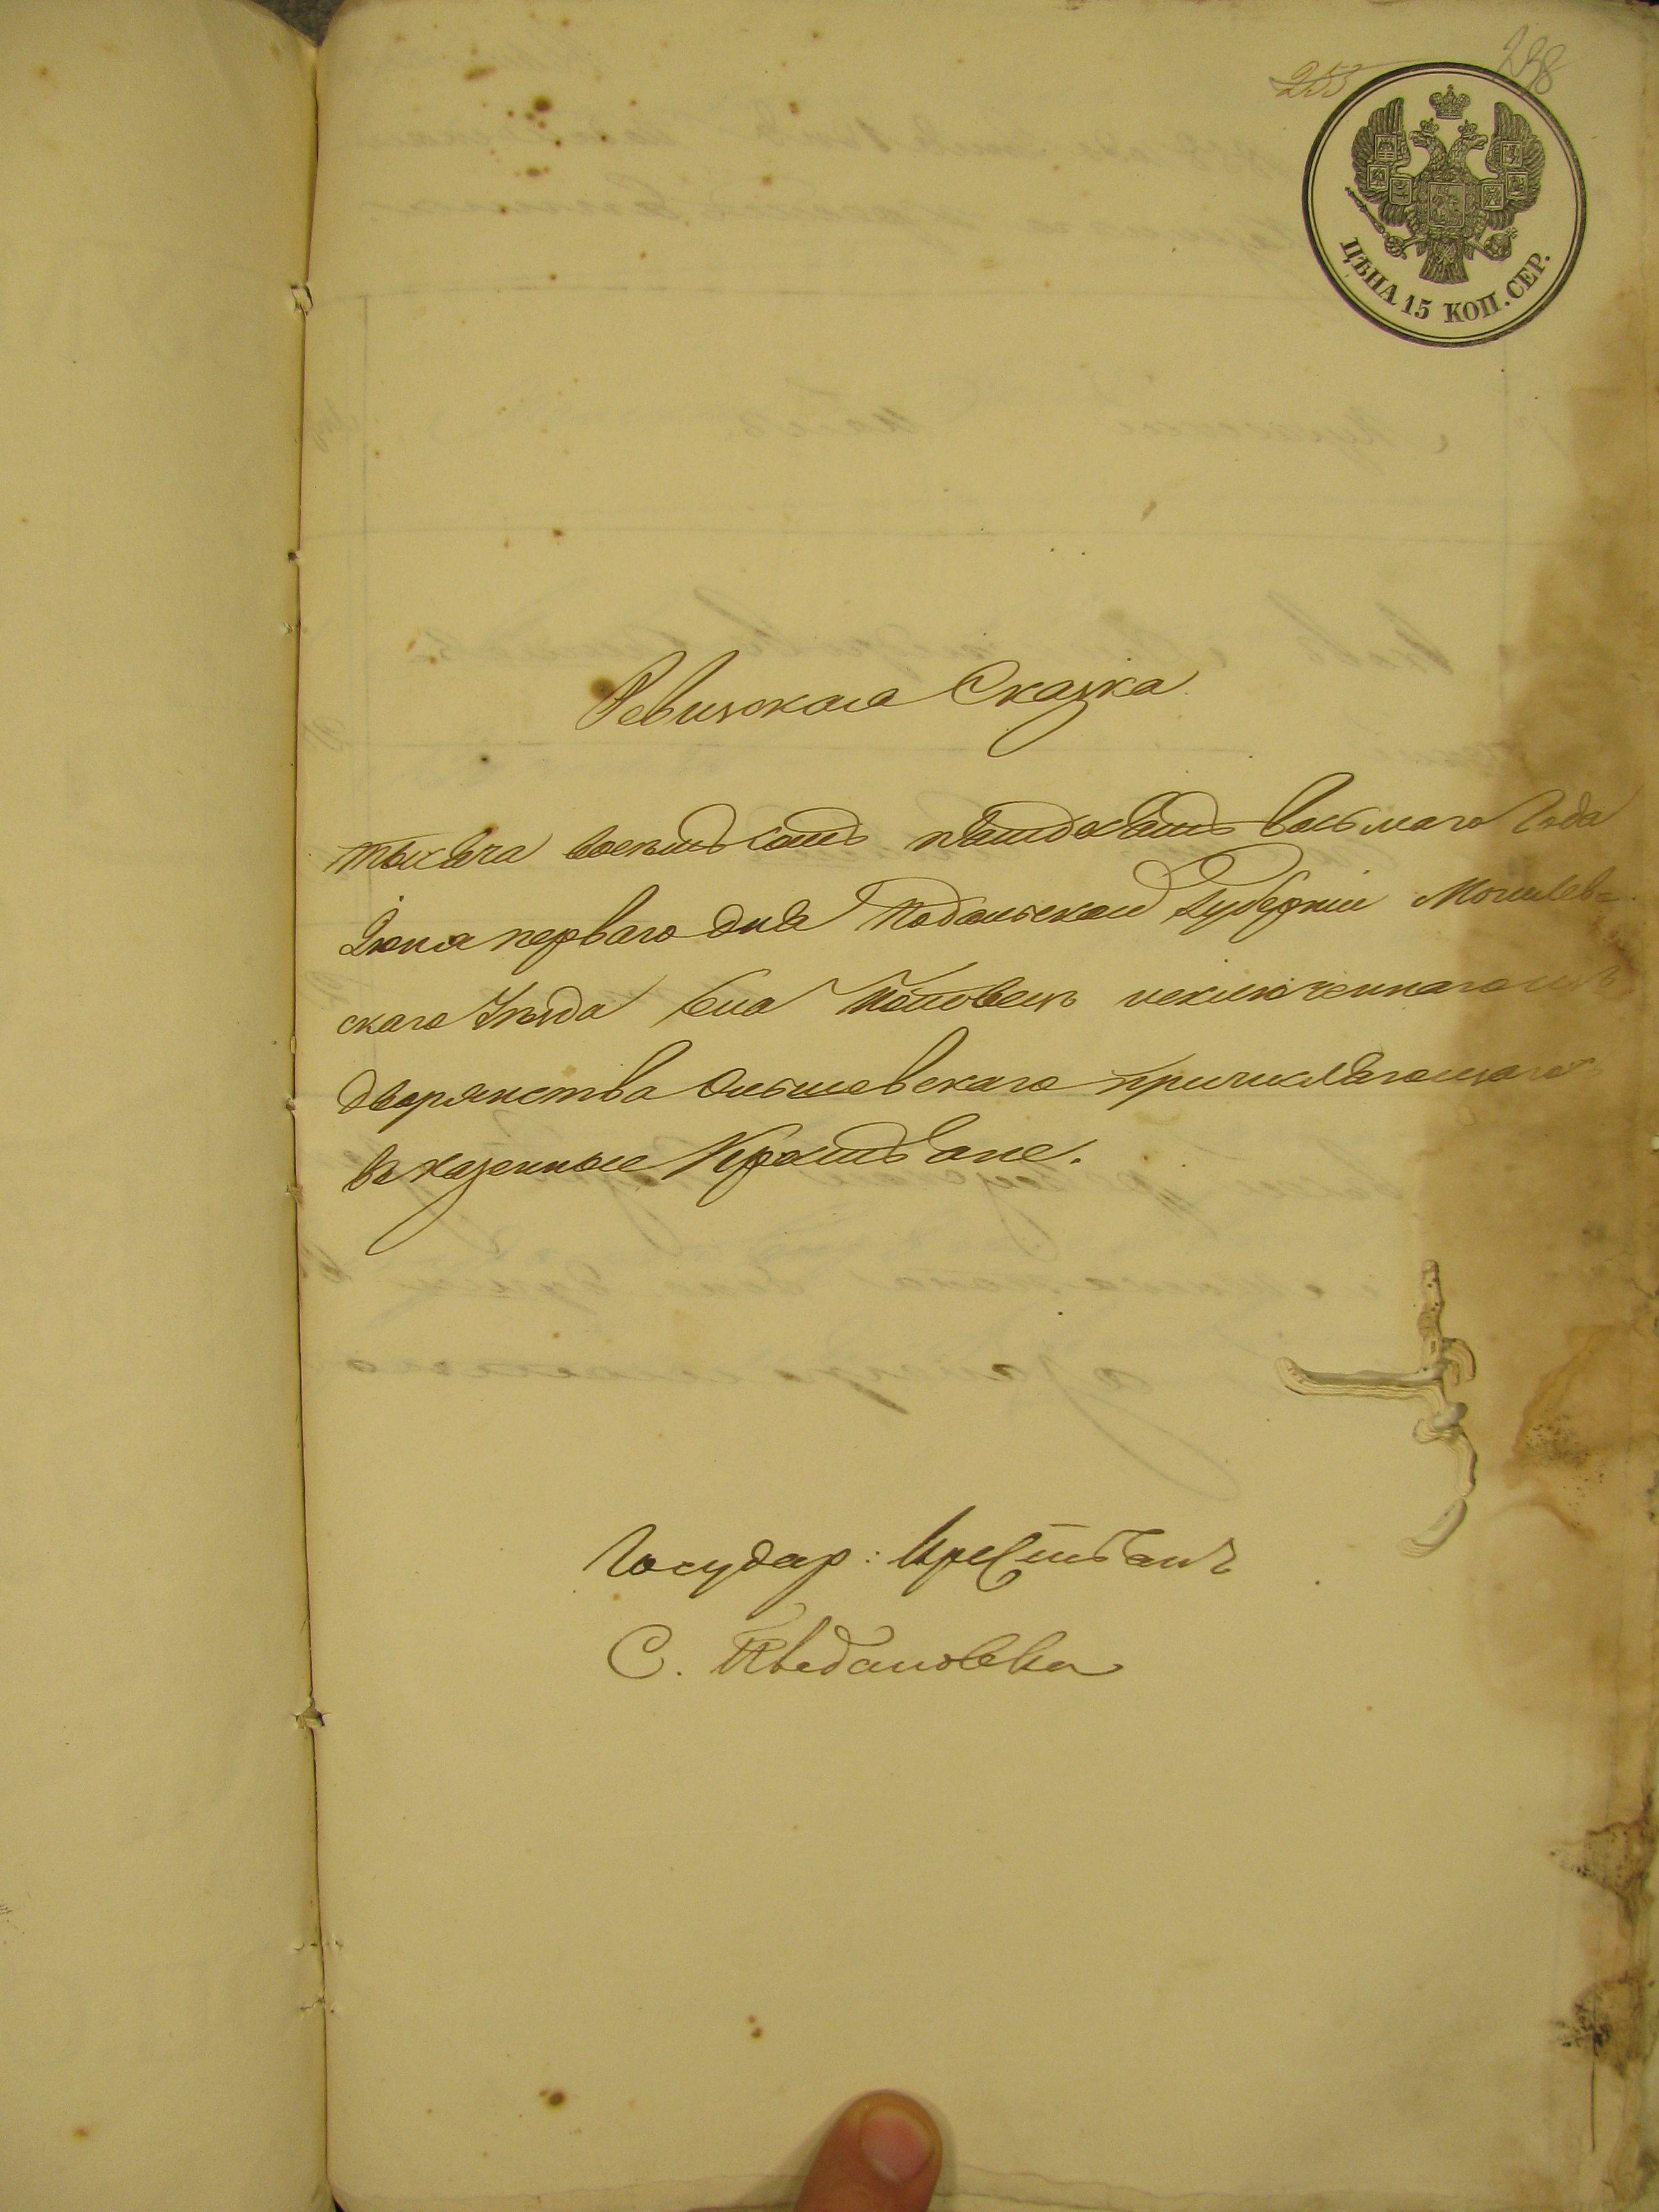 253 238
ЦѢНА 15 КОП. СЕР.
Ревизская Сказка
тысяча восемьсотъ пятьдесятъ восьмаго Года
Іюня перваго дня Подольской Губерніи Могилев=
скаго Уѣзда Села исключеннаго изъ
дворянства причисляющагося
въ казенные Крестьяне.
Государ: Крестьянъ
С.